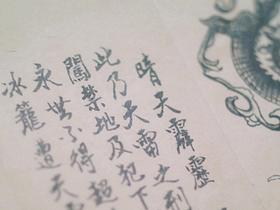 晴天霹靂
此乃天雷之刑
闖禁地及犯下
永世不得超
冰籠遭天